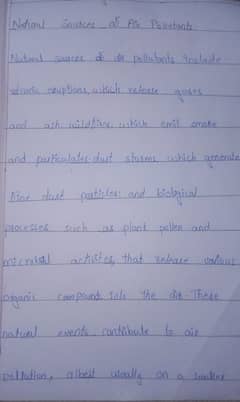 Natural Sources of Air Pollutants
Natural sources of air pollutants include
volcanic eruptions, which release gases
and ash wildfires, which emit smoke
and particulates dust storms which generate
fine dust particles and biological
processes such as plant pollen and
microbial activites, that release various
organic compounds into the air. These
natural events contribute to air
pollution, albeit usually on a smaller